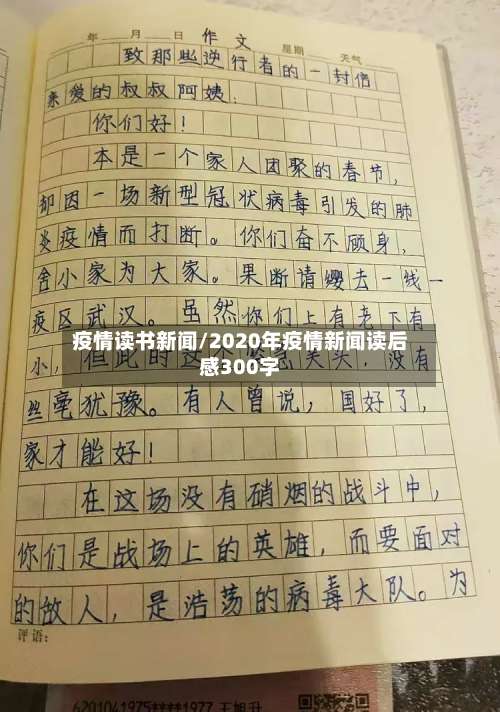 年 月 日 作文 星期 天气
致那些逆行者的一封信
亲爱的叔叔阿姨:
你们好!
本是一个家人团聚的春节,
却因一场新型冠状病毒引发的肺
炎疫情而打断。你们奋不顾身,
舍小家为大家。果断请缨去一线一
疫区武汉。虽然你们上有老下有
疫情读书新闻/2020年疫情新闻读后
感300字
小,但此时
没有
丝毫犹豫。有人曾说,国好了,
家才能好!
在这场没有硝烟的战斗中,
你们是战场上的英雄,而要面对
的敌人,是浩荡的病毒大队。为
评语:
6201041975****1977 王旭升